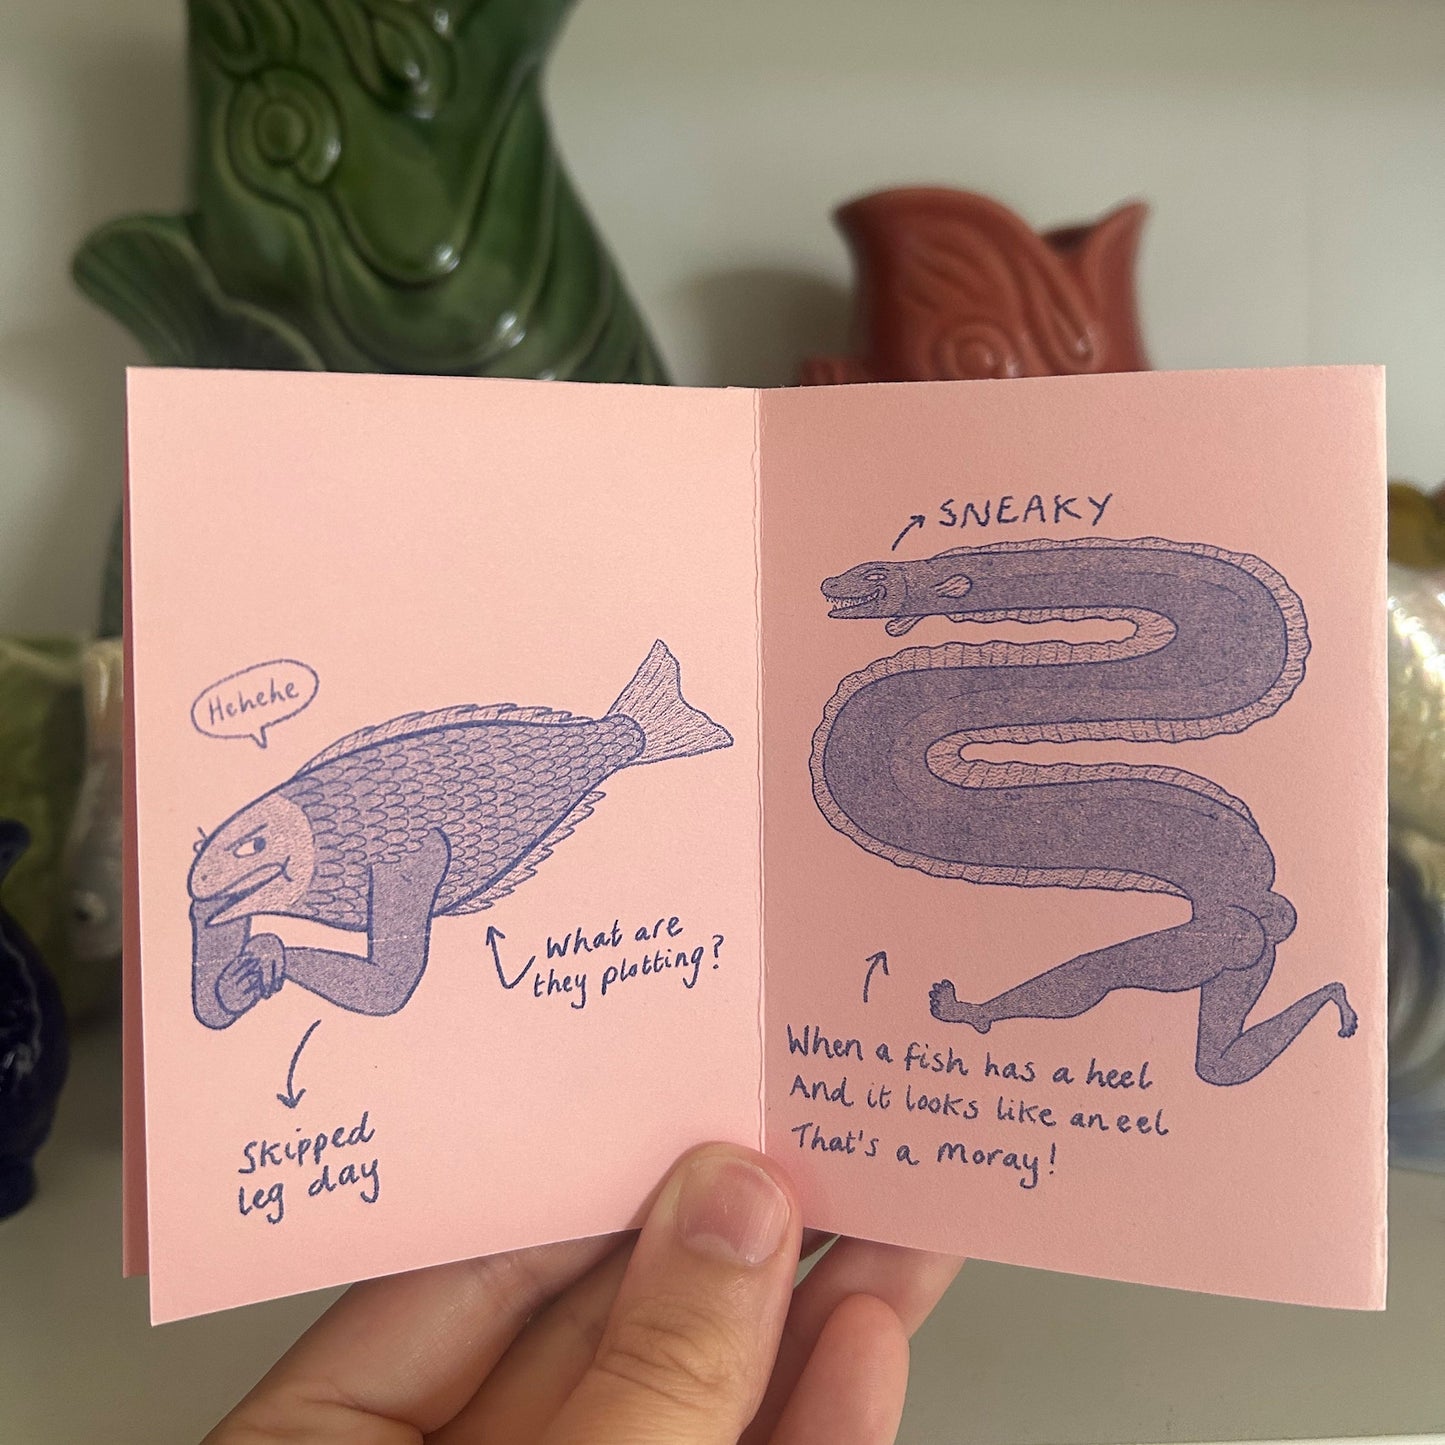 Hehehe
What are
they plotting?
Skipped
leg day
SNEAKY
When a fish has a heel
And it looks like an eel
That's a moray!